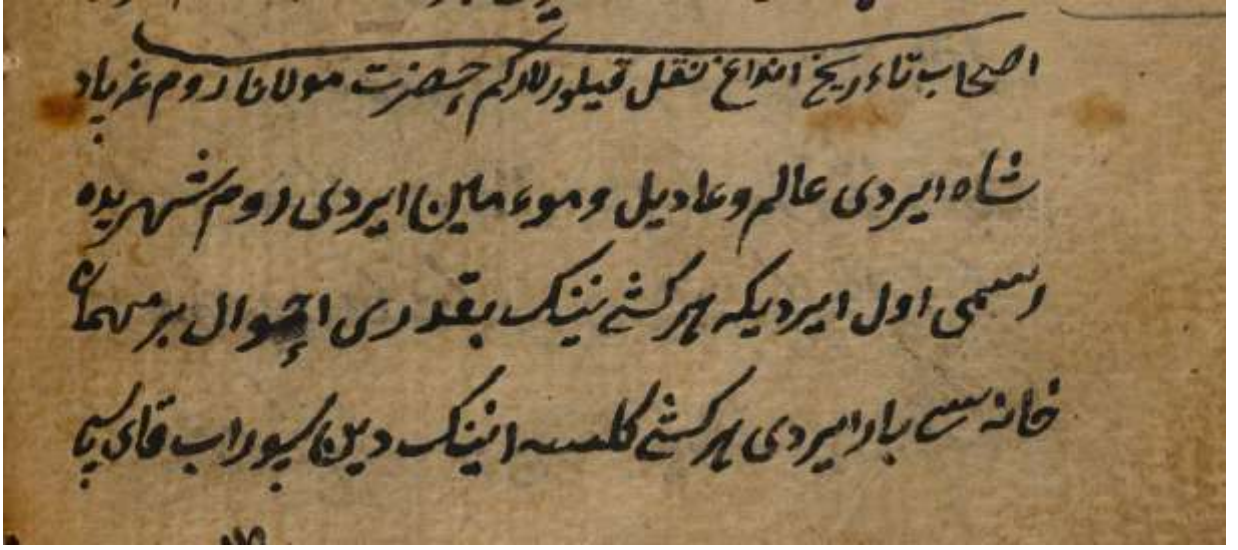 اصحاب تاءریخ انداغ نقل قیلورلارکم حضرت مولانا روم غه پاد
شاه ایردی عالم و عادیل و موء ماین ایردی روم شهریده
رسمی اول ایردیکه هر کشی نینک بقدری احوال بر مهمان
خانه سی بار ایردی هر کشی کلسه انینک دین سوراب قای